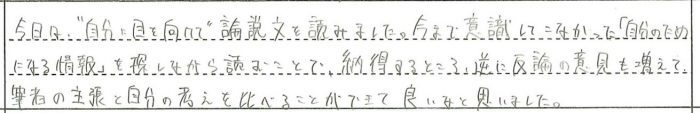 今日は、"自分に目を向けて"論説文を読みました。今まで意識してこなかった「自分のため
になる情報」を探しながら読むことで、納得するところ、逆に反論の意見も増えて、
筆者の主張と自分の考えを比べることができて良いなと思いました。